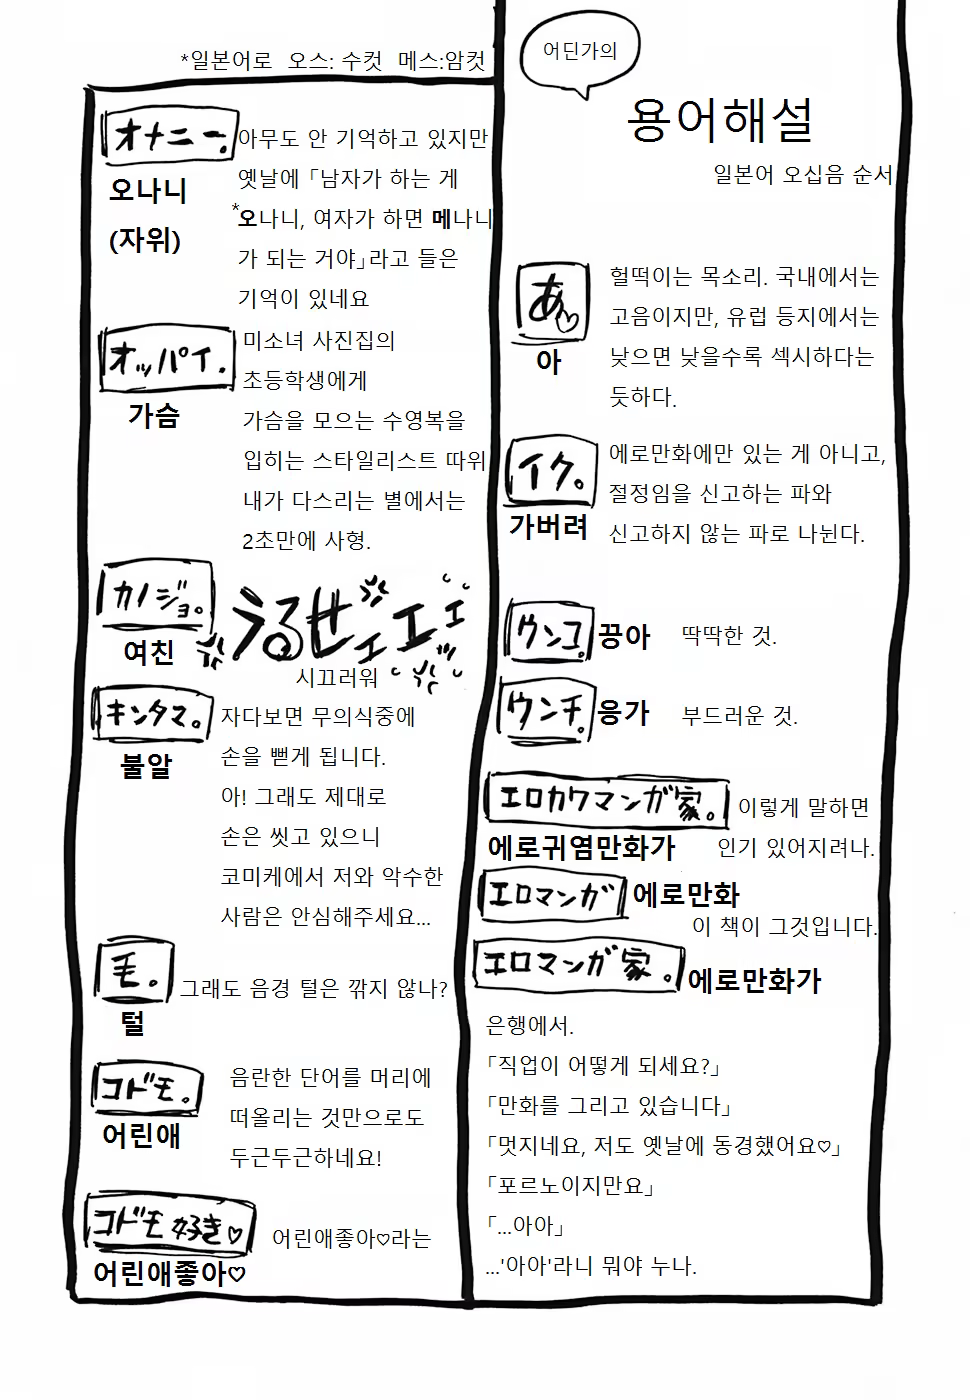 어딘가의
용어해설
일본어 오십음 순서
あ♡
아
헐떡이는 목소리. 국내에서는
고음이지만, 유럽 등지에서는
낮으면 낮을수록 섹시하다는
듯하다.
イク。
가버려
에로만화에만 있는 게 아니고,
절정임을 신고하는 파와
신고하지 않는 파로 나뉜다.
ウンコ。
끙아
딱딱한 것.
ウンチ。
응가
부드러운 것.
エロカワマンガ家。
에로귀염만화가
이렇게 말하면
인기 있어지려나.
エロマンガ
에로만화
이 책이 그것입니다.
エロマンガ家。
에로만화가
은행에서.
「직업이 어떻게 되세요?」
「만화를 그리고 있습니다」
「멋지네요, 저도 옛날에 동경했어요♡」
「포르노이지만요」
「...아아」
...'아아'라니 뭐야 누나.
*일본어로 오스: 수컷 메스:암컷
オナニー。
오나니
(자위)
아무도 안 기억하고 있지만
옛날에 「남자가 하는 게
*오나니, 여자가 하면 메나니
가 되는 거야」라고 들은
기억이 있네요
オッパイ。
가슴
미소녀 사진집의
초등학생에게
가슴을 모으는 수영복을
입히는 스타일리스트 따위
내가 다스리는 별에서는
2초만에 사형.
カノジョ。
여친
うるせェエェ
시끄러워
キンタマ。
불알
자다보면 무의식중에
손을 뻗게 됩니다.
아! 그래도 제대로
손은 씻고 있으니
코미케에서 저와 악수한
사람은 안심해주세요...
毛。
털
그래도 음경 털은 깎지 않나?
コドモ。
어린애
음란한 단어를 머리에
떠올리는 것만으로도
두근두근하네요!
コドモ好き♡
어린애좋아♡
어린애좋아♡라는